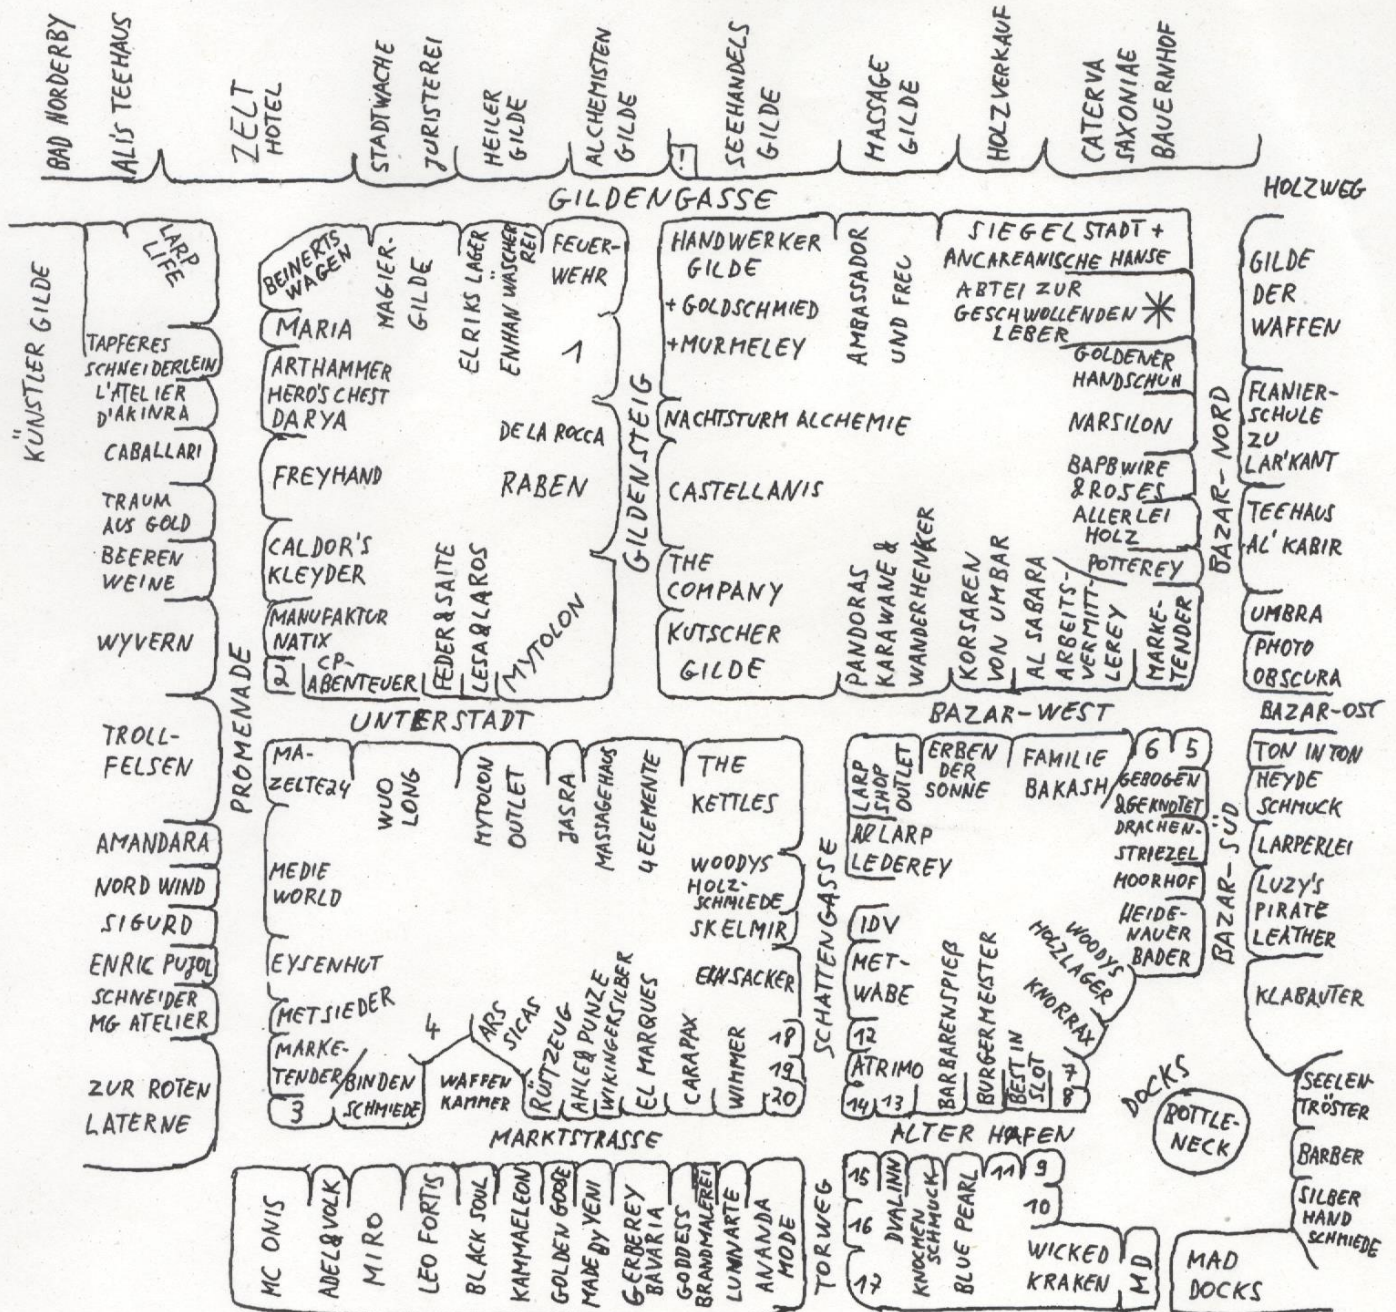 BAD NORDERBY
ALI'S TEEHAUS
ZELT
HOTEL
STADTWACHE
JURISTEREI
HEILER
GILDE
ALCHEMISTEN
GILDE
SEEHANDELS
GILDE
MASSAGE
GILDE
HOLZVERKAUF
CATERVA
SAXONIAE
BAUERNHOF
GILDENGASSE
HOLZWEG
KÜNSTLER GILDE
LARP
LIFE
TAPFERES
SCHNEIDERLEIN
L'ATELIER
D'AKINRA
CABALLARI
TRAUM
AUS GOLD
BEEREN
WEINE
WYVERN
TROLL-
FELSEN
AMANDARA
NORD WIND
SIGURD
ENRIC PUJOL
SCHNEIDER
MG ATELIER
ZUR ROTEN
LATERNE
PROMENADE
BEINERTS
WAGEN
MAGIER-
GILDE
ELRIKS LAGER
ENHAN WÄSCHE
REI
FEUER-
WEHR
MARIA
1
ARTHAMMER
HERO'S CHEST
DARYA
DE LA ROCCA
FREYHAND
RABEN
CALDOR'S
KLEYDER
MANUFAKTUR
NATIX
2
CP-
ABENTEUER
FEDER & SAITE
LESA & LAROS
MYTOLON
GILDENSTEIG
HANDWERKER
GILDE
+ GOLDSCHMIED
+ MURMELEY
AMBASSADOR
UND FREC
SIEGELSTADT +
ANCAREANISCHE HANSE
ABTEI ZUR
GESCHWOLLENDEN
LEBER
GOLDENER
HANDSCHUH
NACHTSTURM ALCHEMIE
NARSILON
CASTELLANIS
BAPBWIRE
& ROSES
ALLERLEI
HOLZ
THE
COMPANY
POTTEREY
KUTSCHER
GILDE
PANDORAS
KARAWANE &
WANDERHENKER
KORSAREN
VON UMBAR
AL SABARA
ARBEITS-
VERMITT-
LEREY
MARKE-
TENDER
BAZAR-NORD
GILDE
DER
WAFFEN
FLANIER-
SCHULE
ZU
LAR'KANT
TEEHAUS
AL' KABIR
UMBRA
PHOTO
OBSCURA
UNTERSTADT
BAZAR-WEST
BAZAR-OST
MA-
ZELTE24
WUO
LONG
MYTOLON
OUTLET
JASRA
MASSAGEHAUS
4 ELEMENTE
THE
KETTLES
WOODYS
HOLZ-
SCHMIEDE
SKELMIR
EINSACKER
MEDIE
WORLD
EYSENHUT
METSIEDER
MARKE-
TENDER
3
BINDEN
SCHMIEDE
4
WAFFEN
KAMMER
ARS
SICAS
RÜSTZEUG
AHLE & PUNZE
WIKINGERSILBER
EL MARQUES
CARAPAX
WIMMER
18
19
20
SCHATTENGASSE
LARP
SHOP
OUTLET
ERBEN
DER
SONNE
FAMILIE
BAKASH
6
5
GEBOGEN
& GEKNOTET
LARP
LEDEREY
DRACHEN-
STRIEZEL
MOORHOF
HEIDE-
NAUER
BADER
IDV
MET-
WABE
12
ATRIMO
14
13
BARBARENSPIEß
BURGERMEISTER
BETT IN
SLOT
WOODYS
HOLZLAGER
KNORRAX
7
8
BAZAR-SÜD
TON IN TON
HEYDE
SCHMUCK
LARPERLEI
LUZY'S
PIRATE
LEATHER
KLABAUTER
DOCKS
BOTTLE-
NECK
SEELEN-
TRÖSTER
BARBER
SILBER
HAND
SCHMIEDE
MARKTSTRASSE
ALTER HAFEN
MC ONIS
ADEL & VOLK
MIRO
LEO FORTIS
BLACK SOUL
KAMMAELEON
GOLDEN GOOSE
MADE BY YENI
GERBEREY
BAVARIA
GODDESS
BRANDMALEREI
LUNNARTE
ANANDA
MODE
TORWEG
15
16
17
DVALINN
KNOCHEN
SCHMUCK
BLUE PEARL
11
9
10
WICKED
KRAKEN
MD
MAD
DOCKS